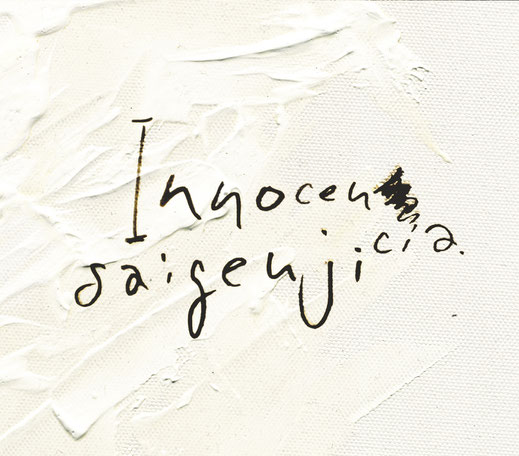 Innocen
cia.
saigenji